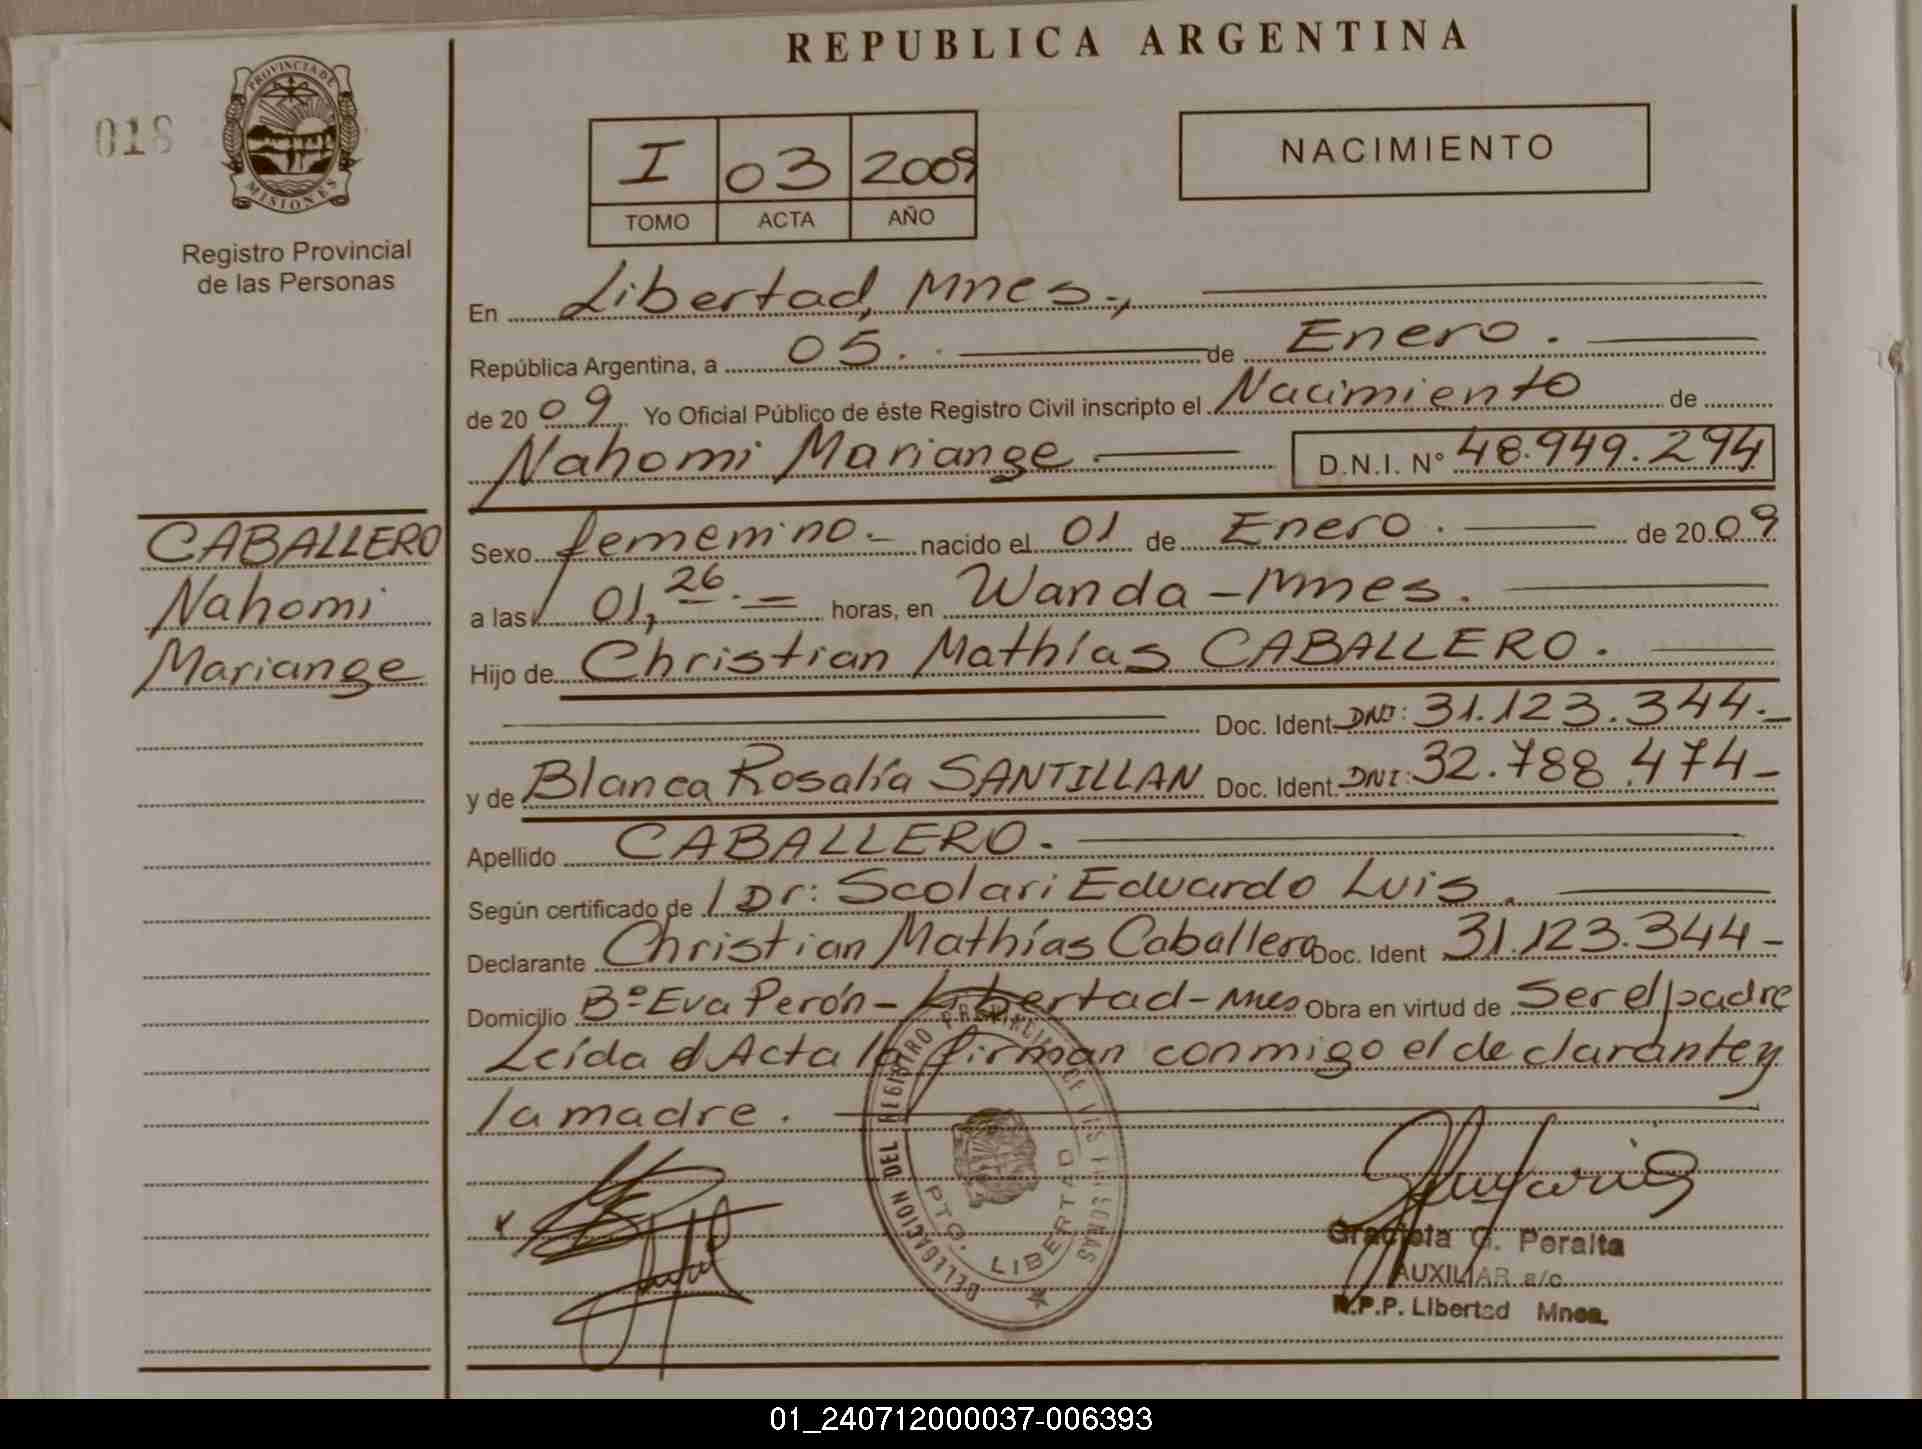 REPUBLICA ARGENTINA
018
PROVINCIA DE
MISIONES
Registro Provincial
de las Personas
I 03 2009
TOMO ACTA AÑO
NACIMIENTO
En Libertad, Mnes.,
República Argentina, a 05. de Enero.
de 20 09 Yo Oficial Público de éste Registro Civil inscripto el Nacimiento de
Nahomi Mariange D.N.I. N° 48.949.294
CABALLERO
Nahomi
Mariange
Sexo femenino.- nacido el 01 de Enero. de 20 09
a las 01,26.= horas, en Wanda - Mnes.
Hijo de Christian Mathías CABALLERO.
Doc. Ident. DNI: 31.123.344.-
y de Blanca Rosalía SANTILLAN Doc. Ident. DNI: 32.788.474-
Apellido CABALLERO.
Según certificado de / Dr: Scolari Eduardo Luis.
Declarante Christian Mathías Caballero Doc. Ident 31.123.344-
Domicilio B° Eva Perón - Libertad - Mnes Obra en virtud de Ser el padre
Leída el Acta la firman conmigo el declarante y
la madre.
DELEGACION DEL REGISTRO PROVINCIAL DE LAS PERSONAS
PTO. LIBERTAD
Graciela G. Peralta
AUXILIAR a/c
R.P.P. Libertad Mnes.
01_240712000037-006393